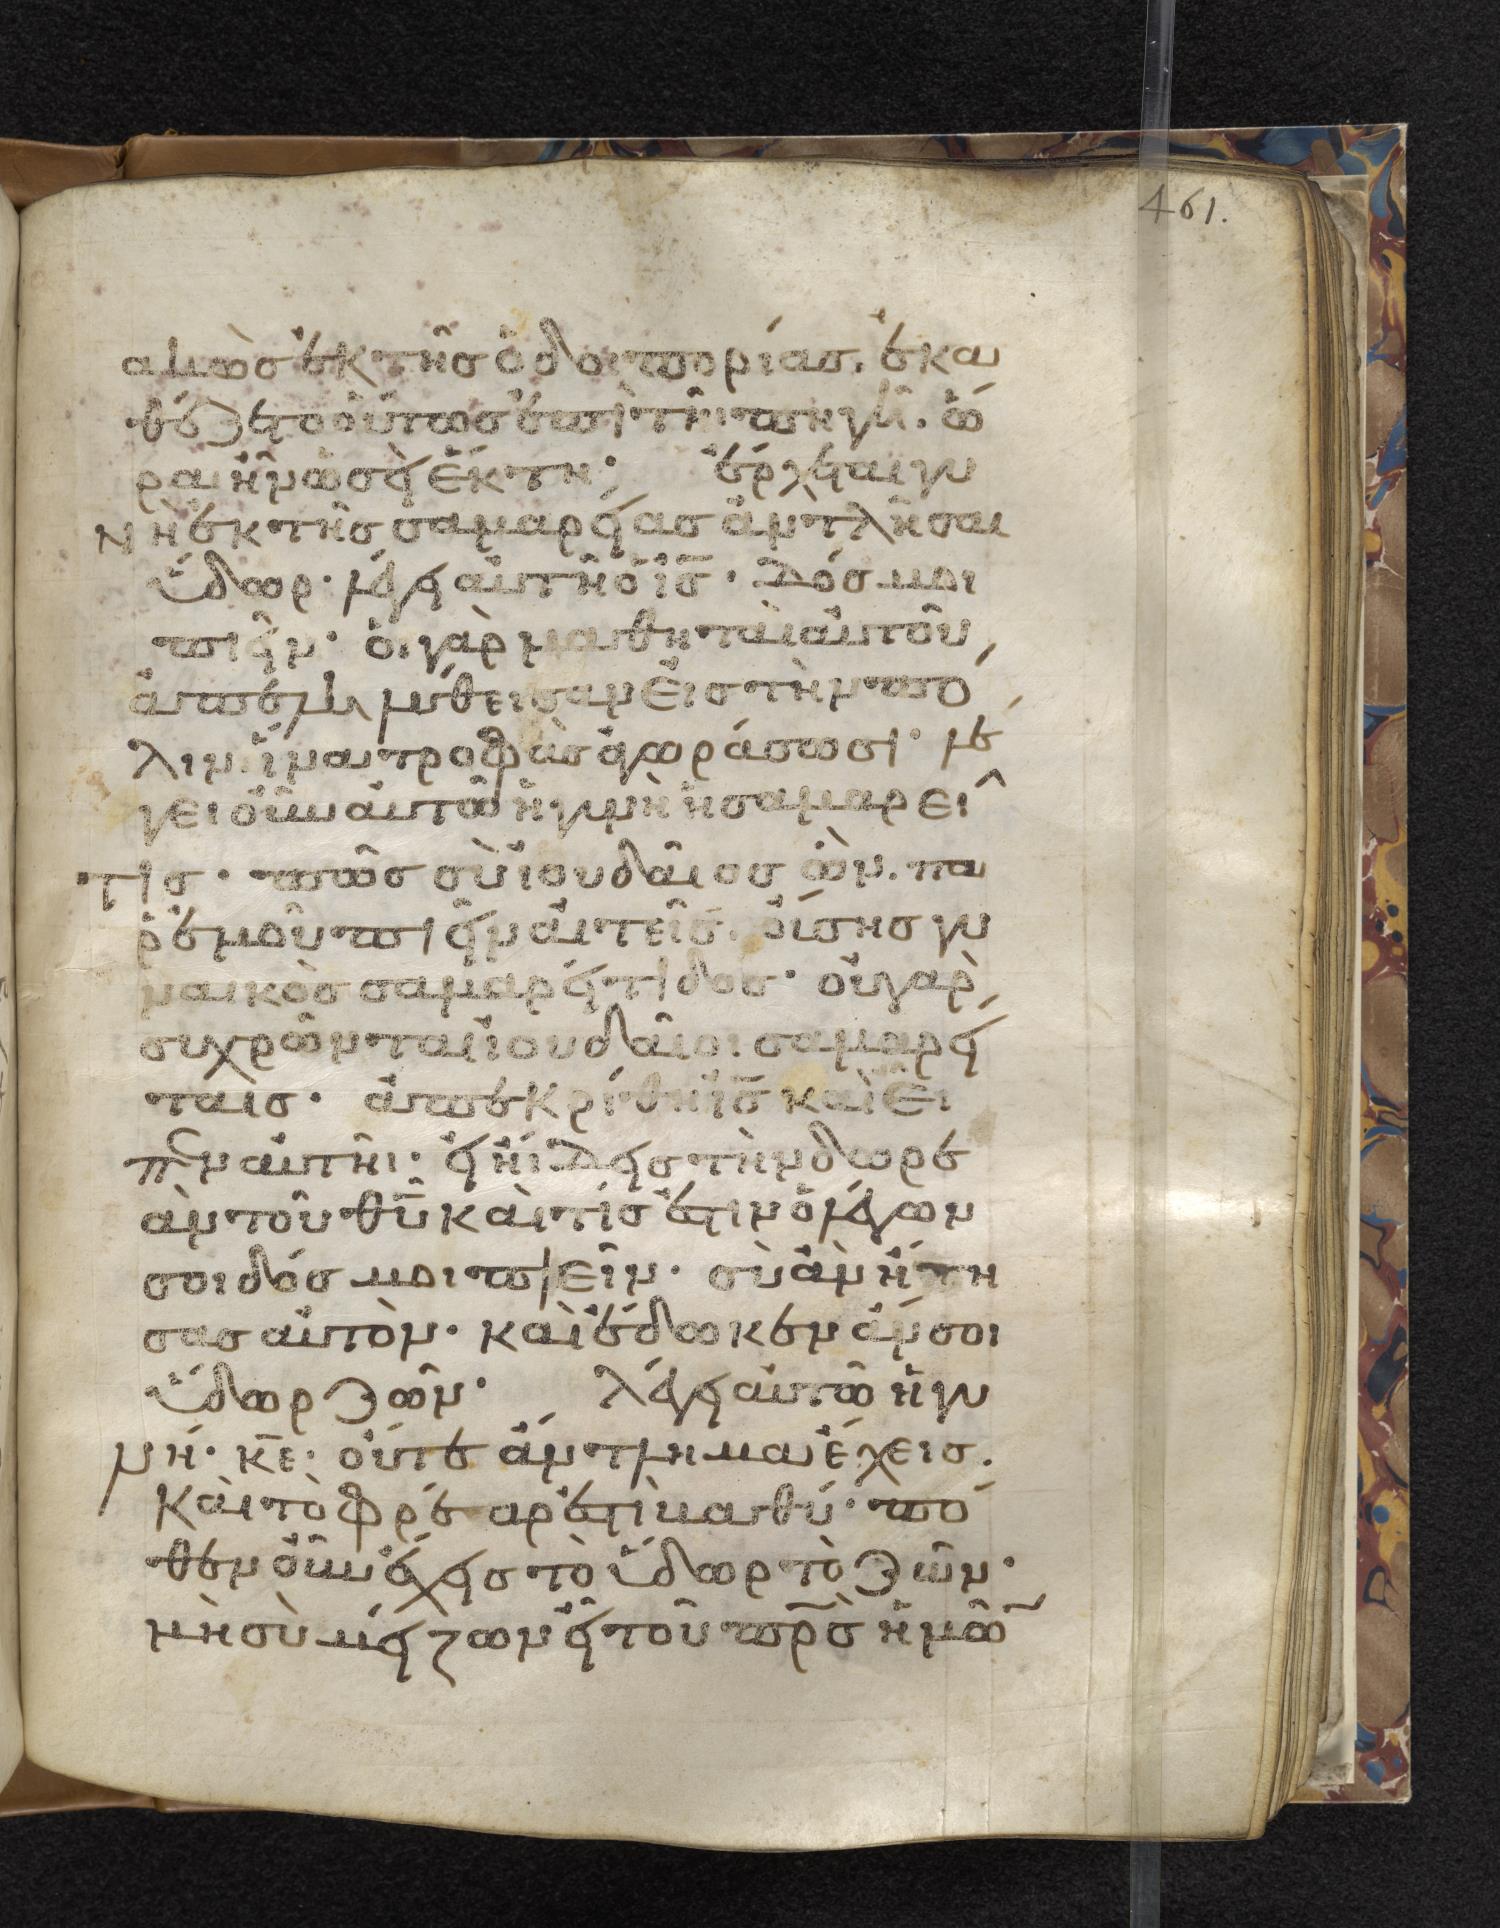 461.
α̣κὼς ἐκ τῆς ὁδοιπορίας. ἐκα
θέζετο οὕτως ἐπὶ τῆι πηγῆ. ὥ
ρα ἦν ὡσεὶ ἕκτη· ἔρχεται γυ
νὴ ἐκ τῆς σαμαρείας ἀντλῆσαι
ὕδωρ· λέγει αὐτῆ ὁ ι̅ς̅· δός μοι
πιεῖν· οἱ γὰρ μαθηταὶ αὐτοῦ
ἀπεληλύθεισαν εἰς τὴν πό
λιν ἵνα τροφὰς ἀγοράσωσι· λέ
γει οὖν αὐτῶ ἡ γυνὴ ἡ σαμαρεῖ
τις· πῶς σὺ ἰουδαῖος ὢν. πα
ρ᾽ ἐμοῦ πιεῖν αἰτεῖς. οὔσης γυ
ναικὸς σαμαρείτιδος· οὐ γὰρ
συχρῶνται ἰουδαῖοι σαμαρεί
ταις· ἀπεκρίθη ι̅ς̅ καὶ εἶ
πεν αὐτῆι· εἰ ἤιδεις τὴν δωρε
ὰν τοῦ θ̅υ̅ καὶ τίς ἐστιν ὁ λέγων
σοι δός μοι πιεῖν· σὺ ἂν ἤτη
σας αὐτὸν· καὶ ἔδωκεν ἄν σοι
ὕδωρ ζῶν· λέγει αὐτῶ ἡ γυ
νή· κ̅ε̅· οὔτε ἄντλημα ἔχεις.
καὶ τὸ φρέαρ ἐστὶ βαθύ· πό
θεν οὖν ἔχεις τὸ ὕδωρ τὸ ζῶν·
μὴ σὺ μείζων εἶ τοῦ π̅ρ̅ς̅ ἡμῶ̅